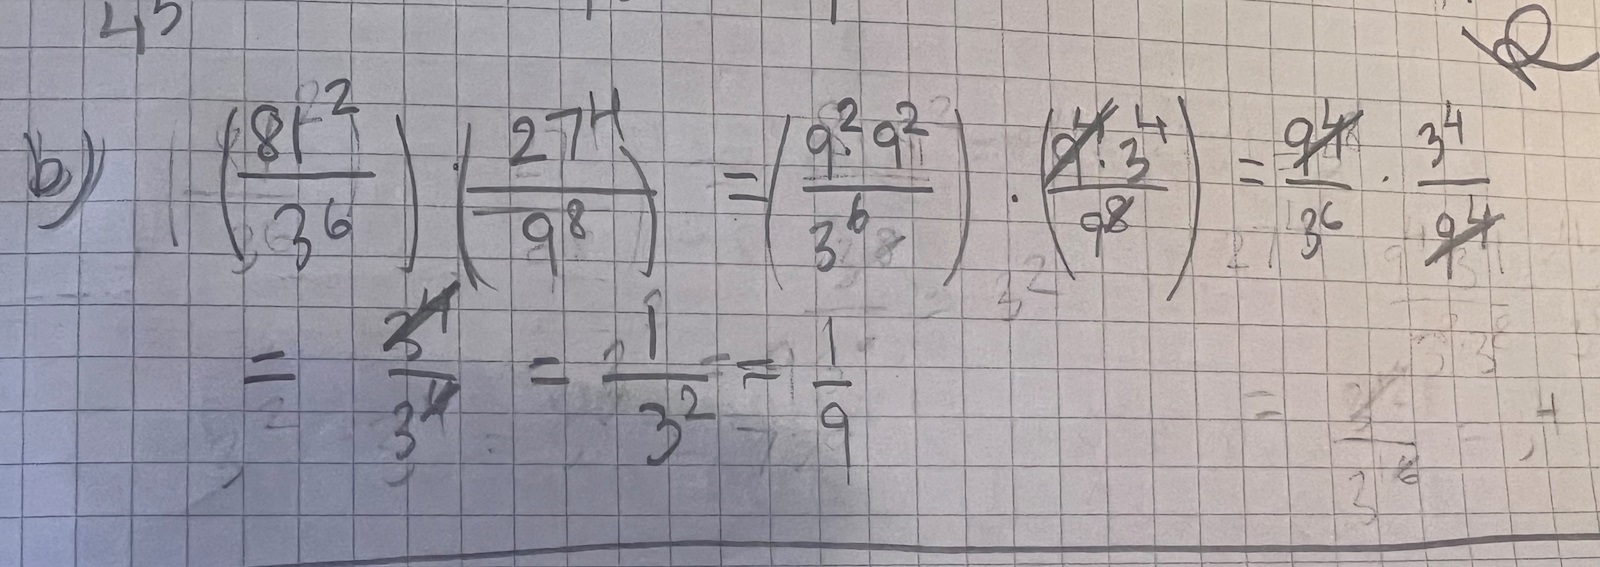 45
b) (81²/3⁶) · (27⁴/9⁸) = (9²·9²/3⁶) · (9⁴·3⁴/9⁸) = 9⁴/3⁶ · 3⁴/9⁴
= 3⁴/3⁴ = 1/3² = 1/9